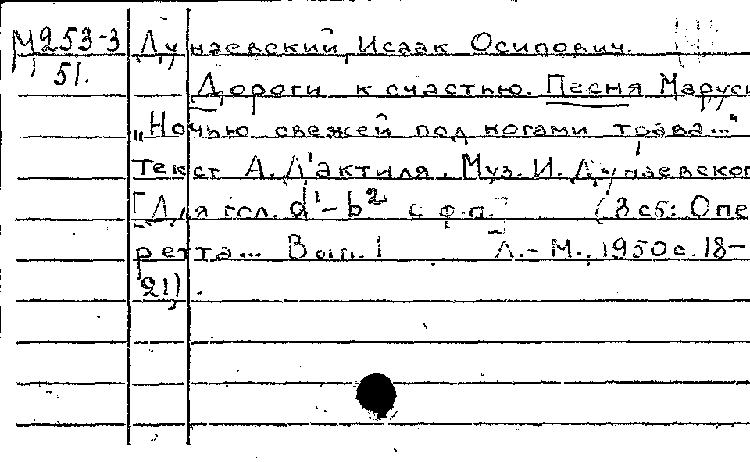 М253-3 Дунаевский, Исаак Осипович.
51.
Дороги к счастью. Песня Маруси
„Ночью свежей под ногами трава..."
Текст А. Д'актиля. Муз. И. Дунаевског
[Для гол. d¹–b² с ф.п.] (В сб: Опе
ретта... Вып. 1 Л.–М., 1950 с. 18–
21).